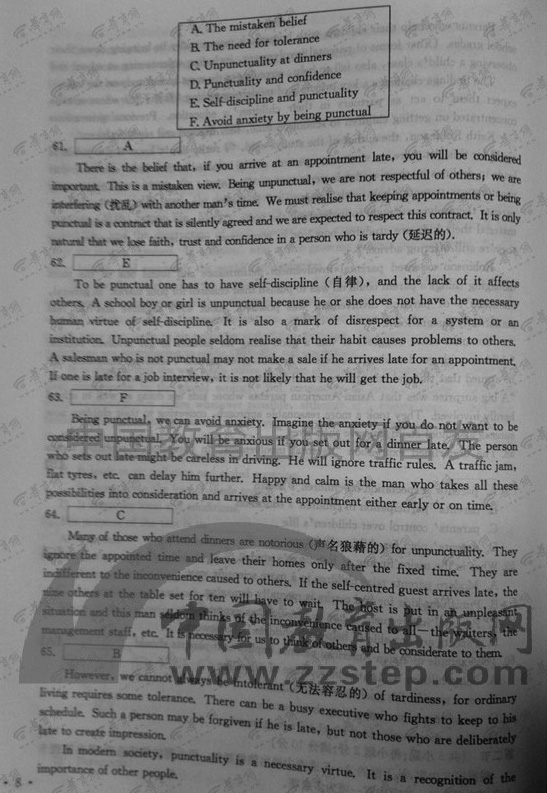 A. The mistaken belief
B. The need for tolerance
C. Unpunctuality at dinners
D. Punctuality and confidence
E. Self-discipline and punctuality
F. Avoid anxiety by being punctual
61. A
There is the belief that, if you arrive at an appointment late, you will be considered
important. This is a mistaken view. Being unpunctual, we are not respectful of others; we are
interfering (扰乱) with another man's time. We must realise that keeping appointments or being
punctual is a contract that is silently agreed and we are expected to respect this contract. It is only
natural that we lose faith, trust and confidence in a person who is tardy (延迟的).
62. E
To be punctual one has to have self-discipline (自律), and the lack of it affects
others. A school boy or girl is unpunctual because he or she does not have the necessary
human virtue of self-discipline. It is also a mark of disrespect for a system or an
institution. Unpunctual people seldom realise that their habit causes problems to others.
A salesman who is not punctual may not make a sale if he arrives late for an appointment.
If one is late for a job interview, it is not likely that he will get the job.
63. F
Being punctual, we can avoid anxiety. Imagine the anxiety if you do not want to be
considered unpunctual. You will be anxious if you set out for a dinner late. The person
who sets out late might be careless in driving. He will ignore traffic rules. A traffic jam,
flat tyres, etc. can delay him further. Happy and calm is the man who takes all these
possibilities into consideration and arrives at the appointment either early or on time.
64. C
Many of those who attend dinners are notorious (声名狼藉的) for unpunctuality. They
ignore the appointed time and leave their homes only after the fixed time. They are
indifferent to the inconvenience caused to others. If the self-centred guest arrives late, the
nine others at the table set for ten will have to wait. The host is put in an unpleasant
situation and this man seldom thinks of the inconvenience caused to all—the waiters, the
management staff, etc. It is necessary for us to think of others and be considerate to them.
65. B
However, we cannot always be intolerant (无法容忍的) of tardiness, for ordinary
living requires some tolerance. There can be a busy executive who fights to keep to his
schedule. Such a person may be forgiven if he is late, but not those who are deliberately
late to create impression.
In modern society, punctuality is a necessary virtue. It is a recognition of the
importance of other people.
· 8 ·
中国教育出版网
www.zzstep.com